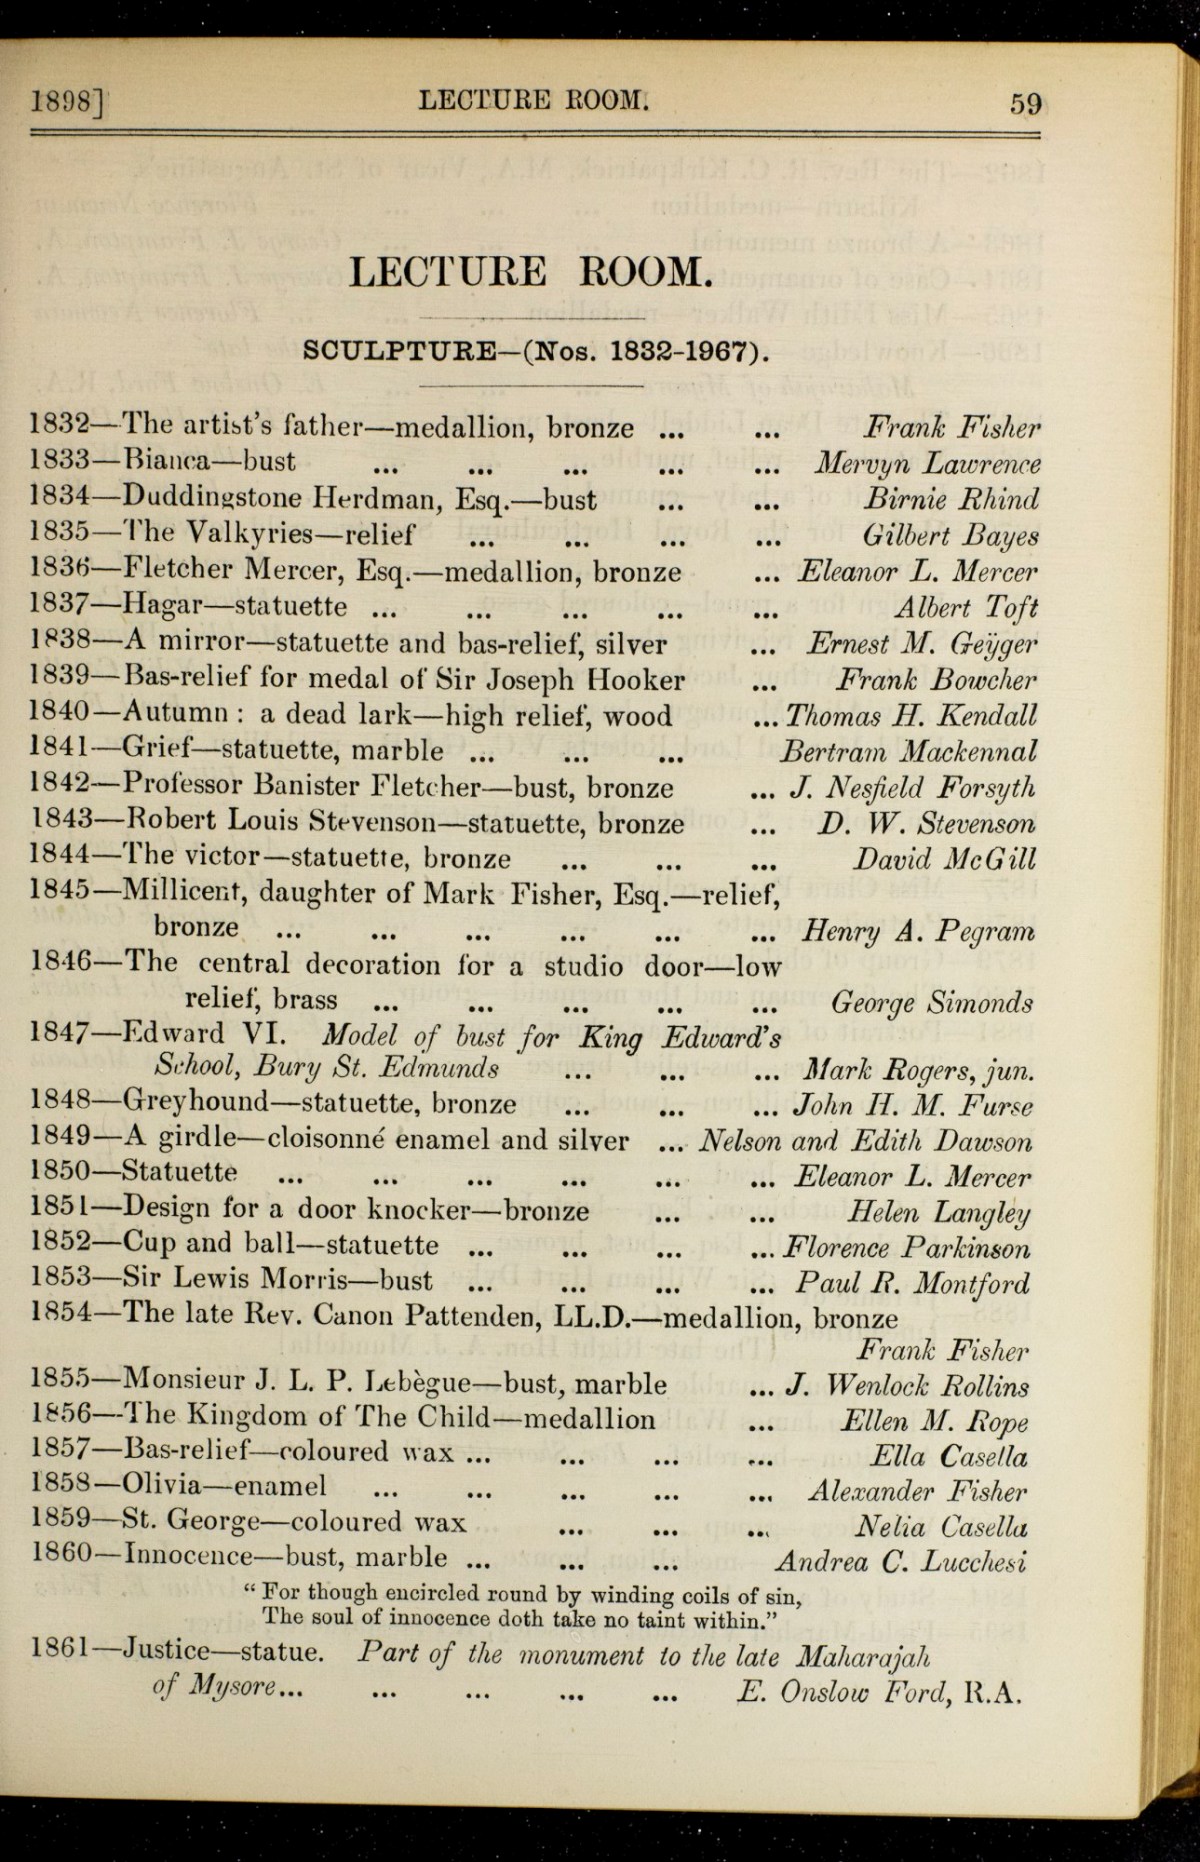 1898] LECTURE ROOM. 59
LECTURE ROOM.
SCULPTURE—(Nos. 1832-1967).
1832—The artist's father—medallion, bronze ... ... Frank Fisher
1833—Bianca—bust ... ... ... ... ... Mervyn Lawrence
1834—Duddingstone Herdman, Esq.—bust ... ... Birnie Rhind
1835—The Valkyries—relief ... ... ... ... Gilbert Bayes
1836—Fletcher Mercer, Esq.—medallion, bronze ... Eleanor L. Mercer
1837—Hagar—statuette ... ... ... ... ... Albert Toft
1838—A mirror—statuette and bas-relief, silver ... Ernest M. Geÿger
1839—Bas-relief for medal of Sir Joseph Hooker ... Frank Bowcher
1840—Autumn : a dead lark—high relief, wood ... Thomas H. Kendall
1841—Grief—statuette, marble ... ... ... Bertram Mackennal
1842—Professor Banister Fletcher—bust, bronze ... J. Nesfield Forsyth
1843—Robert Louis Stevenson—statuette, bronze ... D. W. Stevenson
1844—The victor—statuette, bronze ... ... ... David McGill
1845—Millicent, daughter of Mark Fisher, Esq.—relief,
bronze ... ... ... ... ... ... Henry A. Pegram
1846—The central decoration for a studio door—low
relief, brass ... ... ... ... ... George Simonds
1847—Edward VI. Model of bust for King Edward's
School, Bury St. Edmunds ... ... ... Mark Rogers, jun.
1848—Greyhound—statuette, bronze ... ... ... John H. M. Furse
1849—A girdle—cloisonné enamel and silver ... Nelson and Edith Dawson
1850—Statuette ... ... ... ... ... ... Eleanor L. Mercer
1851—Design for a door knocker—bronze ... ... Helen Langley
1852—Cup and ball—statuette ... ... ... ... Florence Parkinson
1853—Sir Lewis Morris—bust ... ... ... ... Paul R. Montford
1854—The late Rev. Canon Pattenden, LL.D.—medallion, bronze
Frank Fisher
1855—Monsieur J. L. P. Lebègue—bust, marble ... J. Wenlock Rollins
1856—The Kingdom of The Child—medallion ... Ellen M. Rope
1857—Bas-relief—coloured wax ... ... ... ... Ella Casella
1858—Olivia—enamel ... ... ... ... ... Alexander Fisher
1859—St. George—coloured wax ... ... ... Nelia Casella
1860—Innocence—bust, marble ... ... ... Andrea C. Lucchesi
" For though encircled round by winding coils of sin,
The soul of innocence doth take no taint within."
1861—Justice—statue. Part of the monument to the late Maharajah
of Mysore... ... ... ... ... E. Onslow Ford, R.A.